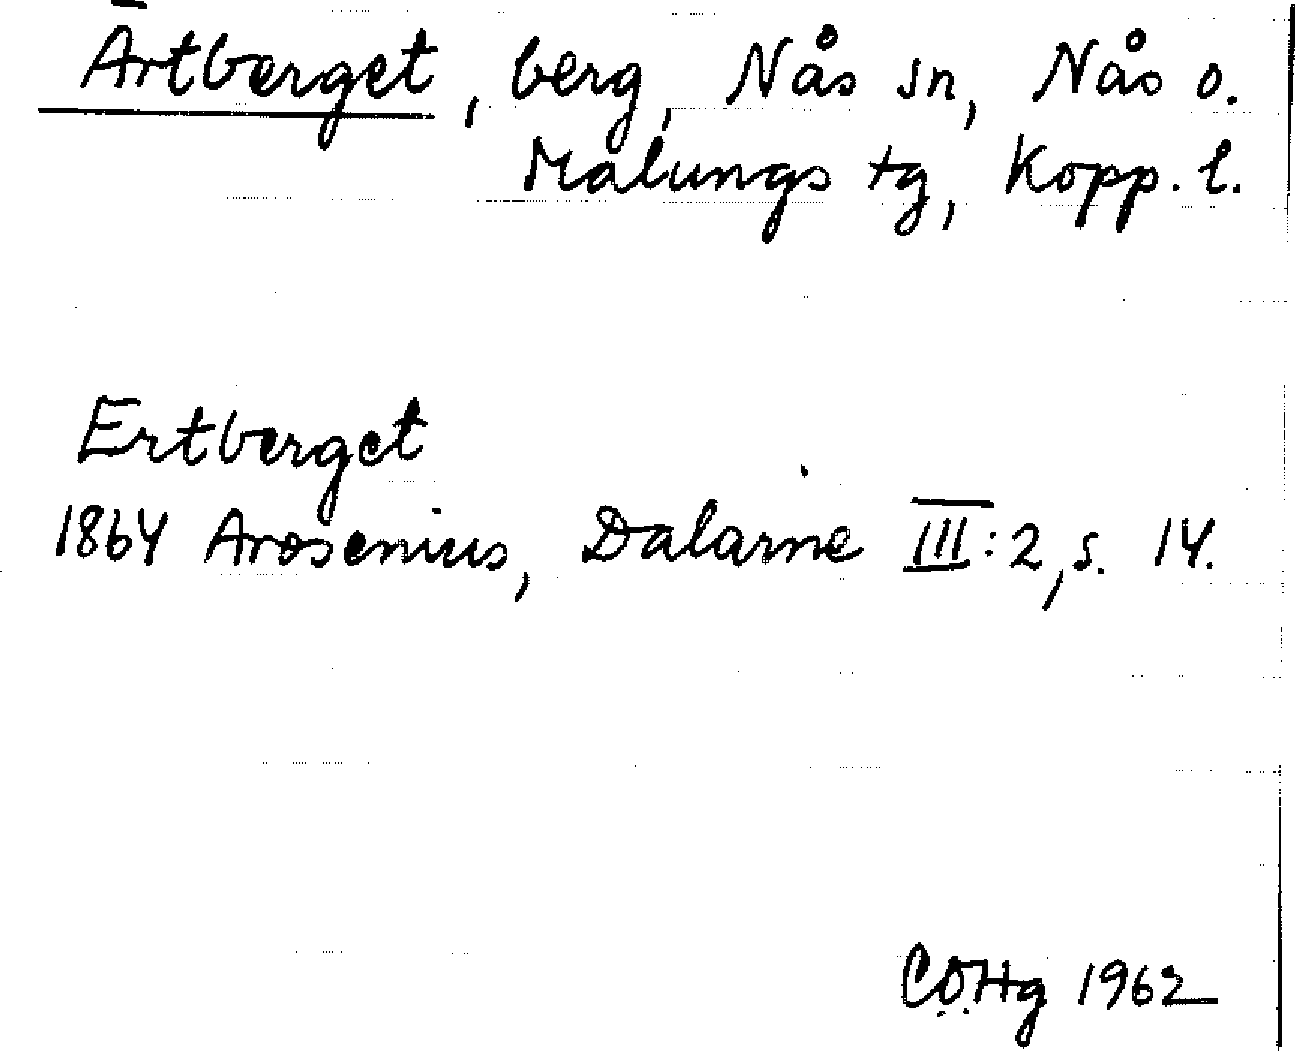 Ärtberget, berg, Nås sn, Nås o.
Malungs tg, Kopp. l.
Ertberget
1864 Arosenius, Dalarne III:2, s. 14.
CÖHg 1962